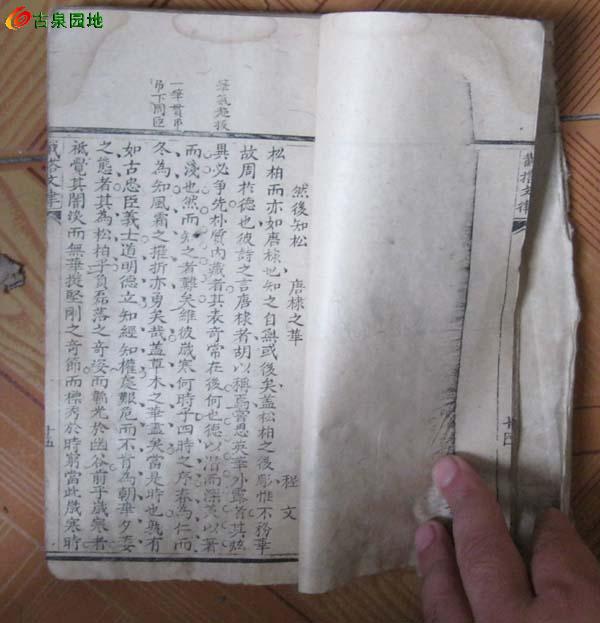 古泉园地
筆氣超拔
一筆貫串
串下閣臣
然後知松 唐棣之華 程文
松柏而亦如唐棣也知之自無或後矣蓋松柏之後彫惟不務華
故周於德也彼詩之言唐棣者胡以稱焉嘗思英華小露者其炫
異必爭先朴質內藏者其表奇常在後何也德以潛而深美以著
而淺也然而知之者難矣維彼歲寒何時乎四時之序春為仁而
冬為知風霜之摧折亦勇矣哉蓋草木之華盡矣當是時也孰有
如古忠臣義士道明德立知經知權處艱危而不肯為朝華夕萎
之態者其為松柏乎負磊落之奇姿而韜光於幽谷前乎歲寒者
祗覺其闇淡而無華挺堅剛之奇節而標秀於時窮當此歲寒時
十五
文律